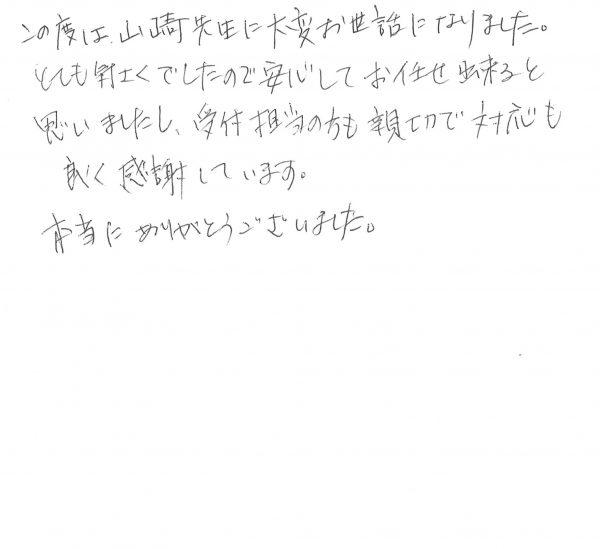 この度は、山崎先生に大変お世話になりました。
とても詳しくでしたので安心してお任せ出来ると
思いましたし、受付担当の方も親切で対応も
良く感謝しています。
本当にありがとうございました。